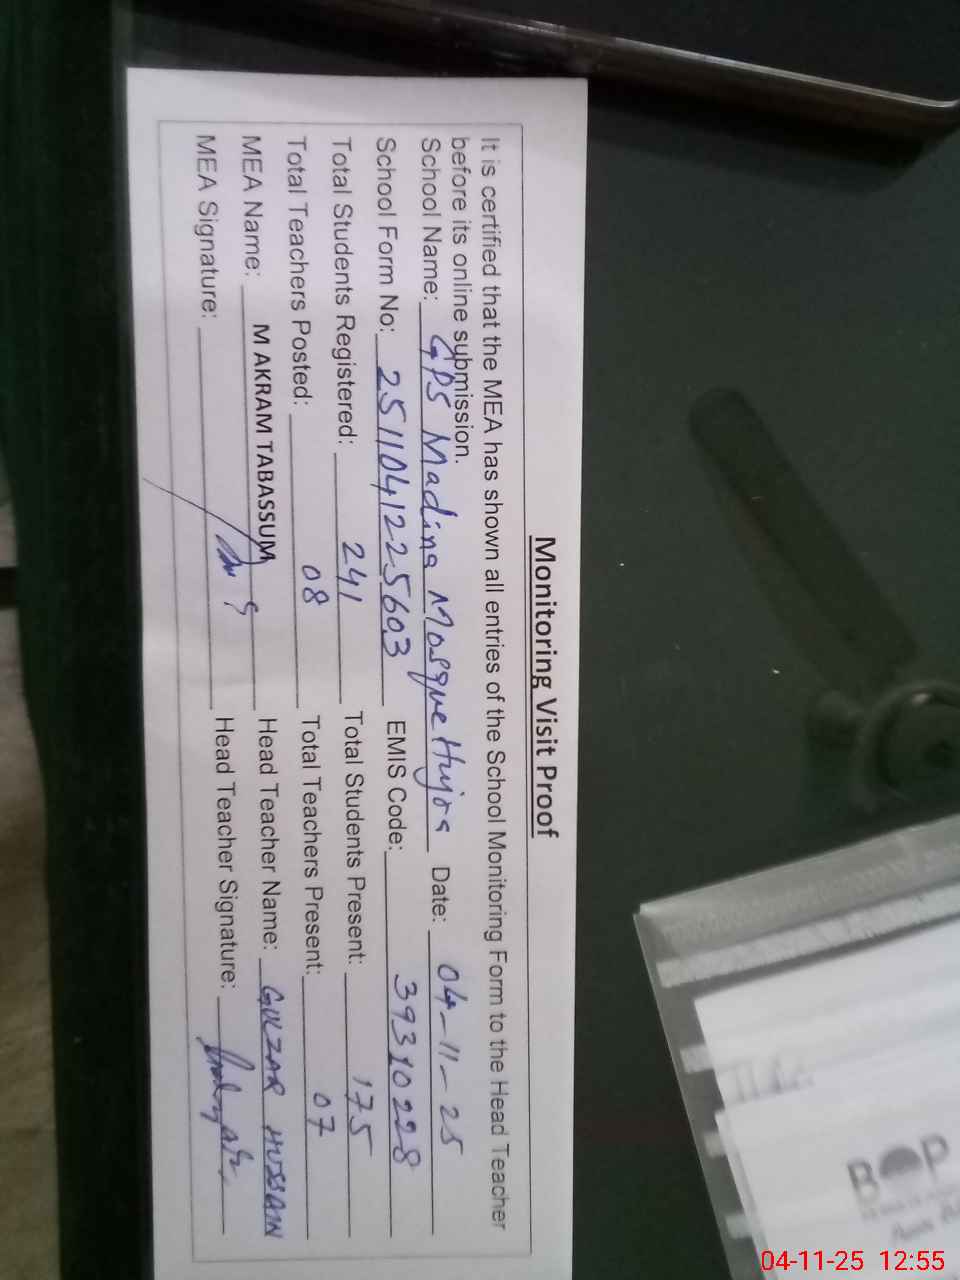 Monitoring Visit Proof
It is certified that the MEA has shown all entries of the School Monitoring Form to the Head Teacher
before its online submission.
School Name: GPS Madina Mosque Hujra Date: 04-11-25
School Form No: 2511041225603 EMIS Code: 39310228
Total Students Registered: 241 Total Students Present: 175
Total Teachers Posted: 08 Total Teachers Present: 07
MEA Name: M AKRAM TABASSUM Head Teacher Name: GULZAR HUSSAIN
MEA Signature: Head Teacher Signature:
BOP
04-11-25 12:55